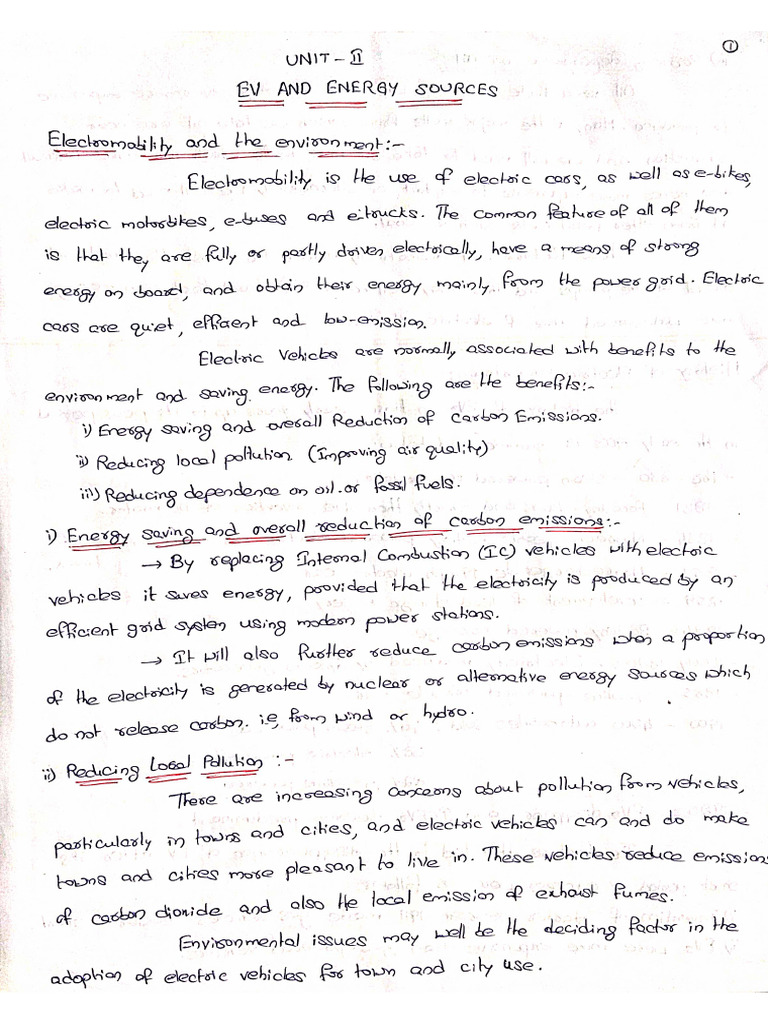 1
UNIT - II
EV AND ENERGY SOURCES
Electromobility and the environment:-
Electromobility is the use of electric cars, as well as e-bikes,
electric motorbikes, e-buses and e-trucks. The common feature of all of them
is that they are fully or partly driven electrically, have a means of strong
energy on board, and obtain their energy mainly from the power grid. Electric
cars are quiet, efficient and low-emission.
Electric Vehicles are normally associated with benefits to the
environment and saving energy. The following are the benefits:-
i) Energy saving and overall Reduction of Carbon Emissions.
ii) Reducing local pollution (Improving air quality)
iii) Reducing dependence on oil or fossil fuels.
i) Energy saving and overall reduction of carbon emissions:-
→ By replacing Internal Combustion (IC) vehicles with electric
vehicles it saves energy, provided that the electricity is produced by an
efficient grid system using modern power stations.
→ It will also further reduce carbon emissions when a proportion
of the electricity is generated by nuclear or alternative energy sources which
do not release carbon. i.e, from wind or hydro.
ii) Reducing Local Pollution :-
There are increasing concerns about pollution from vehicles,
particularly in towns and cities, and electric vehicles can and do make
towns and cities more pleasant to live in. These vehicles reduce emissions
of carbon dioxide and also the local emission of exhaust fumes.
Environmental issues may well be the deciding factor in the
adoption of electric vehicles for town and city use.